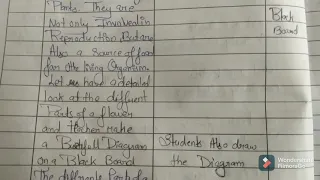 Plants. They are
Not only Involved in
Reproduction But are
Also a source of food
for the living Organism.
Let us have a detailed
look at the different
Parts of a flower
and then make
a Diagram
on a Black Board
The different Parts of a
Students Also draw
the Diagram
Black
Board
Wondershare
Filmora